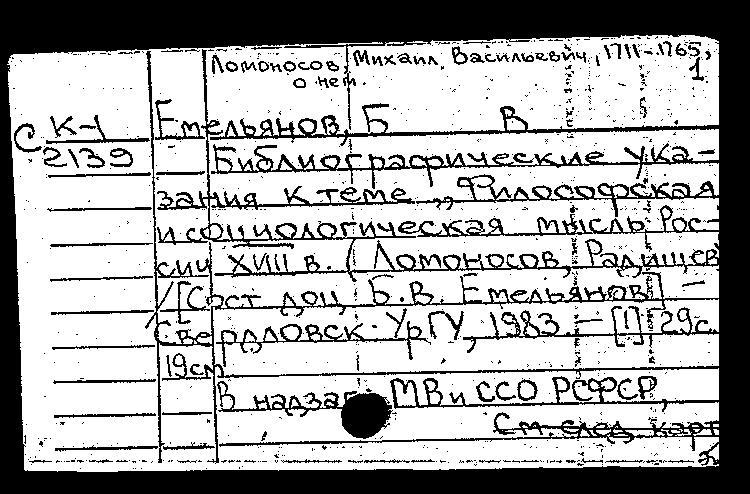 Ломоносов, Михаил Васильевич, 1711-1765,
о нем.
1
С К-1
2139
Емельянов, Б В
Библиографические ука-
зания к теме „Философская
и социологическая мысль Рос-
сии XVIII в. (Ломоносов, Радищев
/[Сост доц Б.В. Емельянов] -
Свердловск: УрГУ, 1983. - [1] 29с.
19см.
В надзаг.: МВ и ССО РСФСР,
См. след. карт